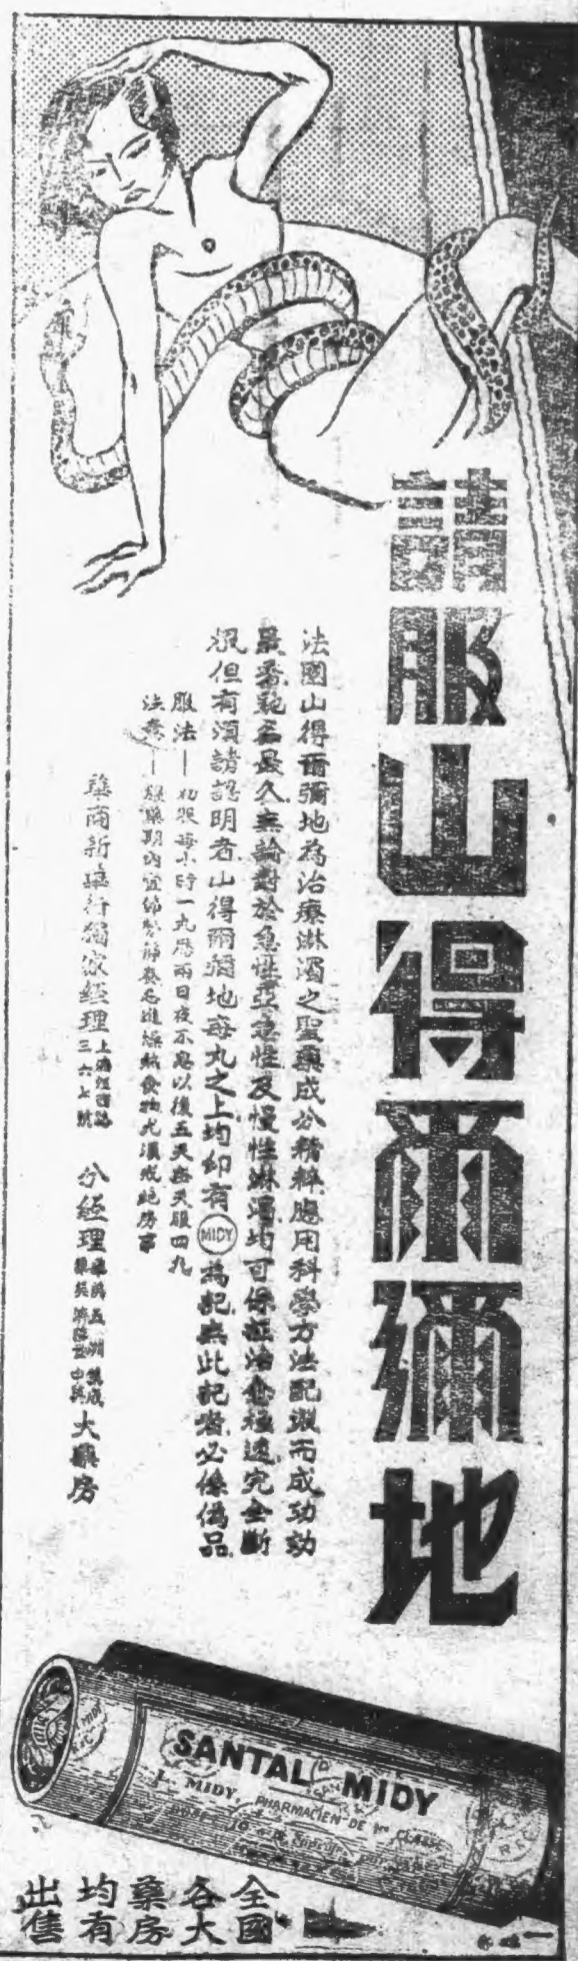 請服山得爾彌地
法國山得爾彌地為治療淋濁之聖藥成分精粹應用科學方法配製而成功効
最香馳名最久無論對於急性亞急性及慢性淋濁均可保証治愈極速完全斷
根但有須請認明者山得爾彌地每丸之上均印有MIDY為記無此記者必係偽品
服法—初服每小時一丸歷兩日夜不息以後五天每天服四丸
注意—服藥期內宜節勞靜養忌進燥熱食物尤須戒絕房事
華商新華行獨家經理
上海江西路
三六七號
分經理
五洲集成
中英
大藥房
SANTAL MIDY
L. MIDY, PHARMACIEN DE 1re CLASSE
全國
各大
藥房
均有
出售